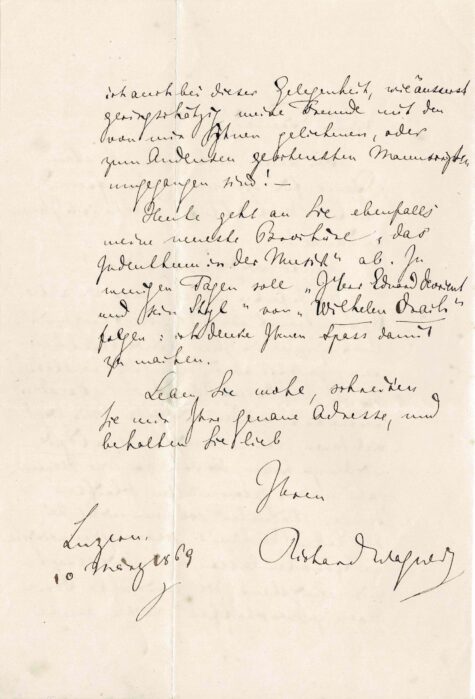 ich auch bei dieser Gelegenheit, wie äusserst
geringschätzig meine Freunde mit den
von mir Ihnen geliehenen, oder
zum Andenken geschenkten Manuscripten
umgegangen sind! —
Heute geht an Sie ebenfalls
meine neueste Brochüre „das
Judenthum in der Musik" ab. In
wenigen Tagen soll „Herr Eduard Devrient
und sein Styl" von „Wilhelm Drach"
folgen: ich denke Ihnen Spass damit
zu machen.
Leben Sie wohl, schreiben
Sie mir Ihre genaue Adresse, und
behalten Sie lieb
Ihren
Richard Wagner
Luzern.
10 März 1869